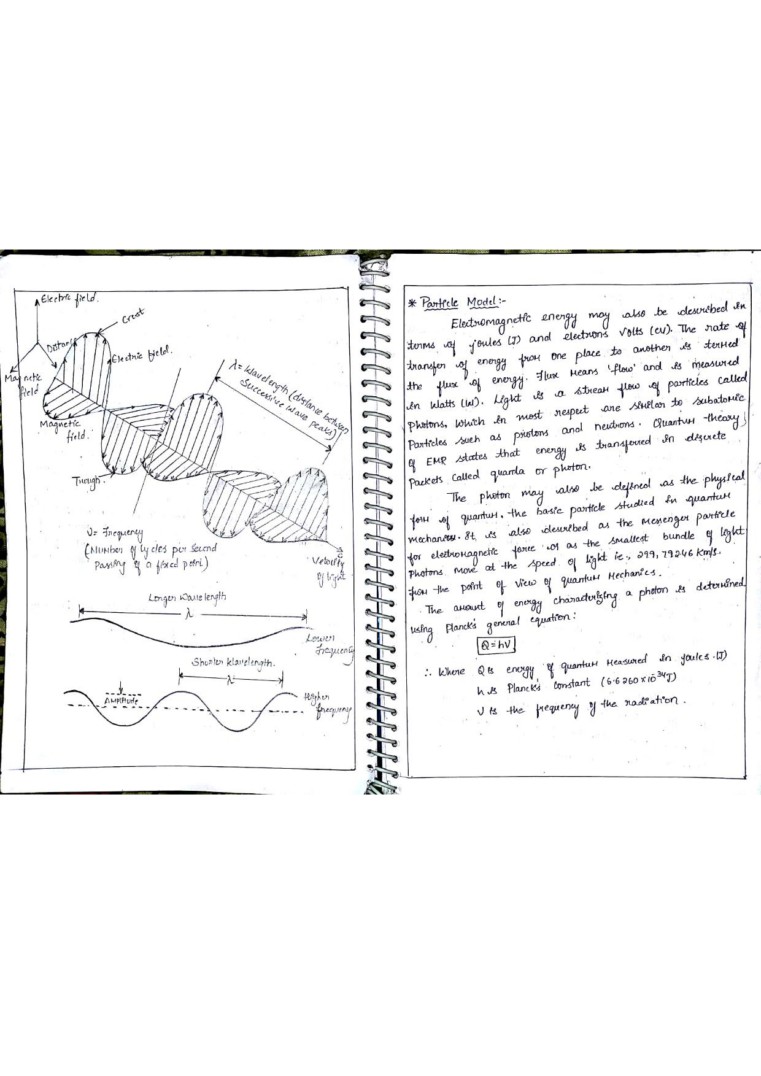 Electric field.
Crest
Distance
Electric field.
Magnetic
field
λ = Wavelength (distance between
Successive wave peaks)
Magnetic
field.
Trough.
ν = Frequency
(Number of cycles per second
Passing of a fixed point)
c
Velocity
of light
Longer Wavelength
λ
Lower
frequency
Shorter Wavelength.
λ
Amplitude
Higher
frequency
* Particle Model:-
Electromagnetic energy may also be described in
terms of joules (J) and electrons Volts (eV). The rate of
transfer of energy from one place to another is termed
the flux of energy. Flux means 'flow' and is measured
in Watts (W). Light is a stream flow of particles called
photons, Which in most respect are similar to subatomic
Particles such as protons and neutrons. Quantum theory
of EMR states that energy is transferred in discrete
Packets called quanta or photon.
The photon may also be defined as the physical
form of quantum, the basic particle studied in quantum
Mechanics. It is also described as the messenger particle
for electromagnetic force or as the smallest bundle of light.
Photons move at the speed of light ie., 299,79246 km/s.
from the point of view of quantum Mechanics.
The amount of energy characterizing a photon is determined
using Planck's general equation:
Q = hν
∴ Where Q is energy of quantum Measured in joules.(J)
h is Planck's Constant (6.6260 x 10³⁴J)
ν is the frequency of the radiation.